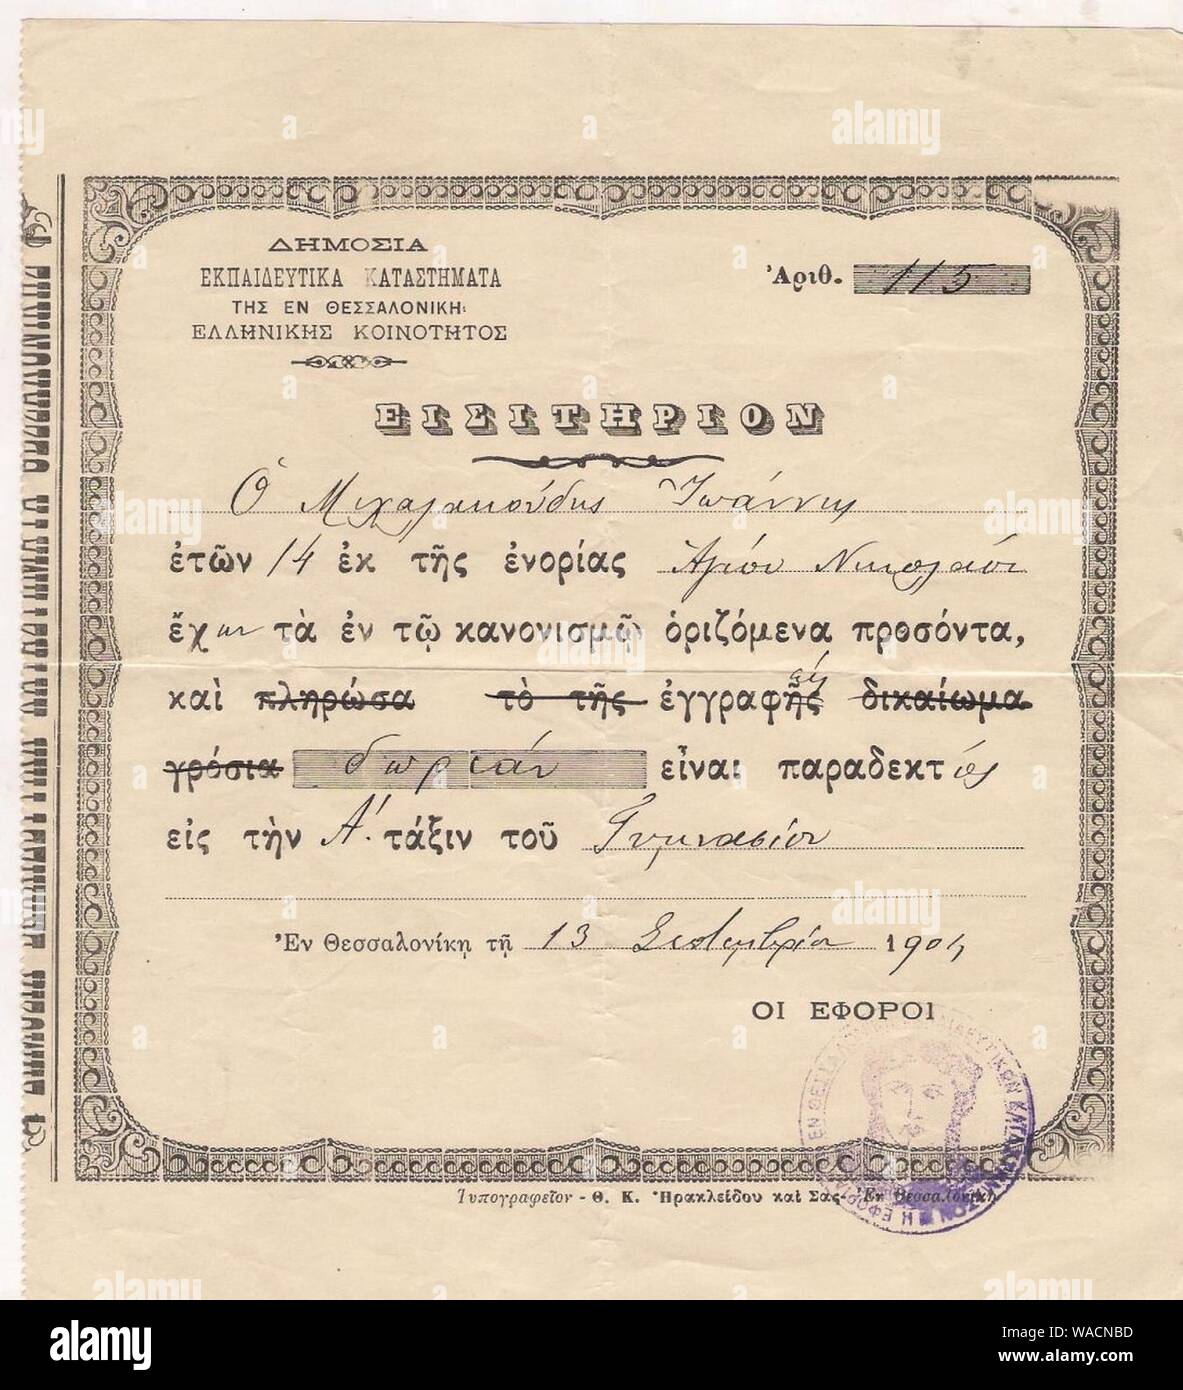 ΔΗΜΟΣΙΑ
ΕΚΠΑΙΔΕΥΤΙΚΑ ΚΑΤΑΣΤΗΜΑΤΑ
ΤΗΣ ΕΝ ΘΕΣΣΑΛΟΝΙΚΗ
ΕΛΛΗΝΙΚΗΣ ΚΟΙΝΟΤΗΤΟΣ
Ἀριθ. 115
ΕΙΣΙΤΗΡΙΟΝ
Ὁ Μιχαλακούδης Ἰωάννης
ἐτῶν 14 ἐκ τῆς ἐνορίας Ἁγίου Νικολάου
ἔχων τὰ ἐν τῷ κανονισμῷ ὁριζόμενα προσόντα,
καὶ πληρώσα τὸ τῆς ἐγγραφῆς δικαίωμα
γρόσια δωρεάν εἶναι παραδεκτός
εἰς τὴν Α΄. τάξιν τοῦ Γυμνασίου
Ἐν Θεσσαλονίκῃ τῇ 13 Σεπτεμβρίου 1904
ΟΙ ΕΦΟΡΟΙ
Τυπογραφεῖον - Θ. Κ. Ἡρακλείδου καὶ Σας - Ἐν Θεσσαλονίκῃ
alamy
Image ID: WACNBD
www.alamy.com